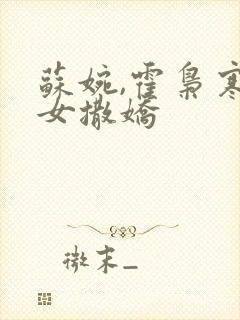 蘇婉,霍梟寒
女撒嬌
微末_